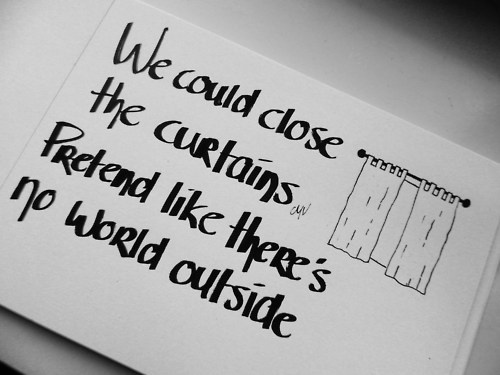 We could close
the curtains
Pretend like there's
no world outside